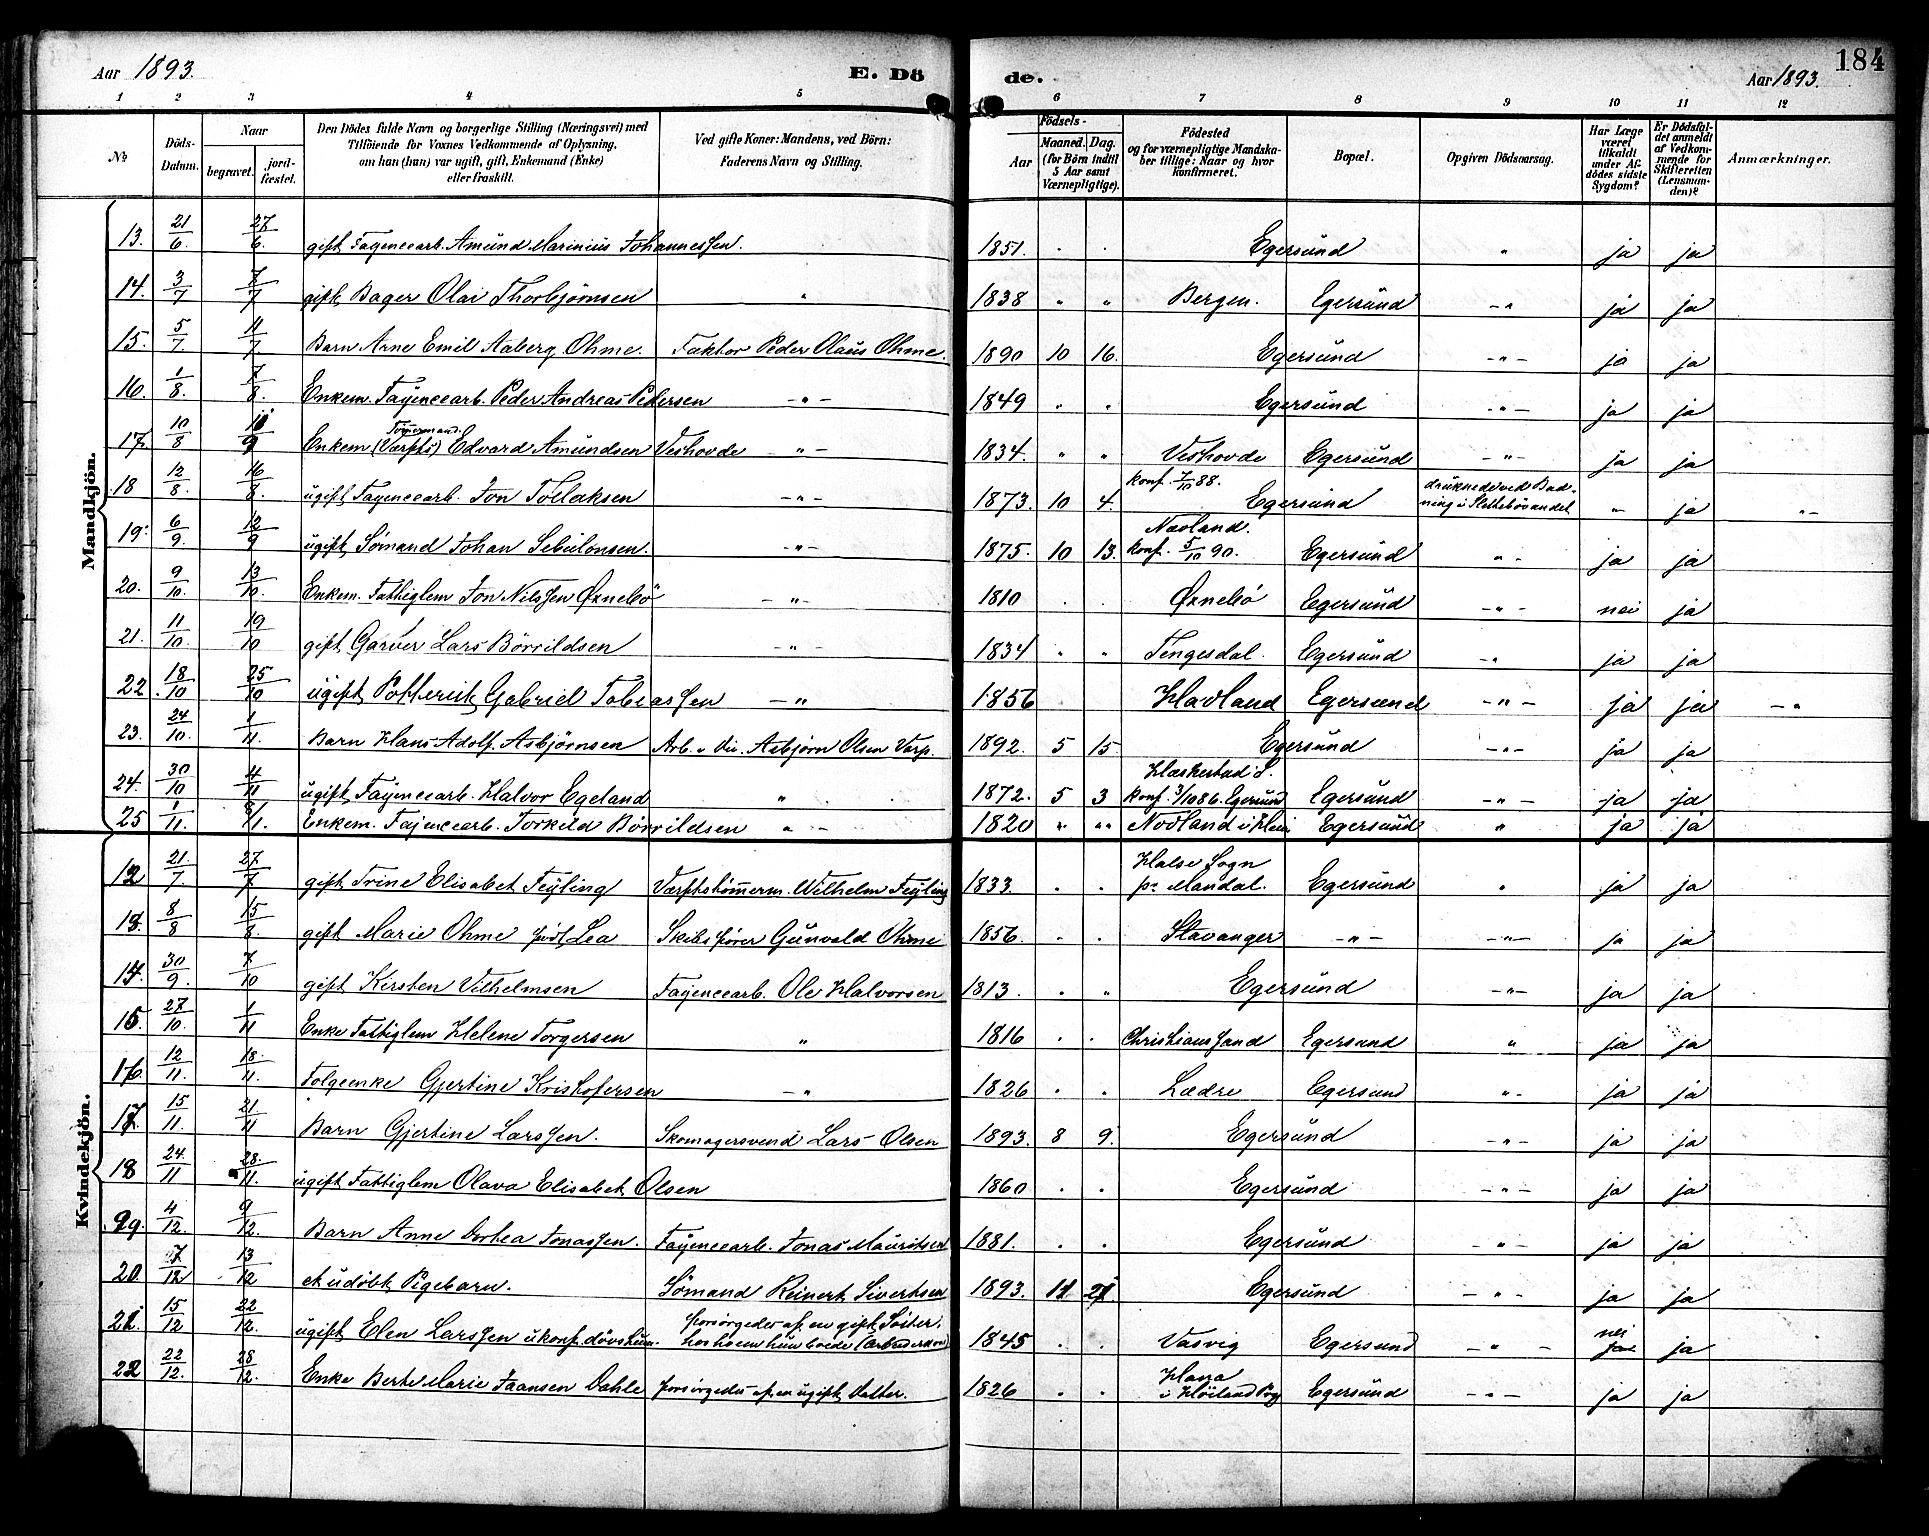 Aar 1893. E. Dö de. Aar 1893. 184
1 2 3 4 5 6 7 8 9 10 11 12
No Döds-Datum. Naar begravet. jord-fæstet. Den Dödes fulde Navn og borgerlige Stilling (Næringsvei) med Tilföiende for Voxnes Vedkommende af Oplysning, om han (hun) var ugift, gift, Enkemand (Enke) eller fraskilt. Ved gifte Koner: Mandens, ved Börn: Faderens Navn og Stilling. Födsels- Aar Maaned. Dag. (for Börn indtil 5 Aar samt Værnepligtige). Födested og for værnepligtige Mandskaber tillige: Naar og hvor konfirmeret. Bopæl. Opgiven Dödsaarsag. Har Læge været tilkaldt under Afdödes sidste Sygdom? Er Dödsfaldet anmeldt af Vedkommende for Skifteretten (Lensmanden)? Anmærkninger.
Mandkjön.
13. 21/6 27/6. gift Fayencearb. Amund Marinius Johannessen. 1851. Egersund " ja ja
14. 3/7 7/7 gift Bager Olai Thorbjörnsen " 1838 " " Bergen. Egersund -"- ja ja
15. 5/7. 11/7. Barn Arne Emil Aaberg Ohme. Faktor Peder Olaus Ohme. 1890 10 16. Egersund -"- ja ja
16. 1/8. 7/8. Enkem. Fayencearb. Peder Andreas Pedersen -"- 1849 " " Egersund -"- ja ja
17. 10/8 /9 Enkem (Værfts) Tömmermand. Edvard Amundsen Veshovde -"- 1834. " " Veshovde Egersund -"- ja ja
18 12/8. 16/8. ugift Fayencearb. Jon Tollaksen -"- 1873. 10 4. konf. 7/10 88. Egersund druknede ved Badning i Slettebövandet. " ja -"-
19. 6/9. 12/9 ugift Sömand Johan Sebulonsen. -"- 1875. 10 13. Navland. konf. 5/10 90. Egersund "- ja ja
20. 9/10 13/10. Enkem. Fattiglem Jon Nilssen Øxnebö -"- 1810 . . Øxnebö Egersund -"- nei ja
21. 11/10. 19/10 gift Garver Lars Börrildsen -"- 1834 " " Tengesdal. Egersund -"- ja ja
22 18/10 25/10 ugift Gabriel Tobiassen -"- 1856 Havland Egersund -"- ja ja -"-
23. 24/10. 1/11. Barn Hans Adolf Asbjörnsen Asbjörn Olsen 1892. 5 15. Egersund -"- ja ja
24. 30/10 4/11 ugift Fayencearb. Halvor Egeland " 1872. 5 3 konf. 3/10 86. Egersund Egersund -"- ja ja
25 1/11. 8/11. Enkem. Fajencearb. Torkild Börrildsen " - 1820 " "" Egersund " ja ja
Kvindekjön.
12 21/7. 27/7 gift Trine Elisabet Feyling Værftstömmerm. Wilhelm Feyling 1833. . . Halse Sogn pr Mandal. Egersund " ja ja
13. 8/8 15/8. gift Marie Ohme födt Lea Skibsförer Gunvald Ohme 1856. . . Stavanger -"- -"- ja ja
14. 30/9. 7/10 gift Kirsten Vilhelmsen Fayencearb. Ole Halvorsen 1813. . " Egersund -"- ja ja
15. 27/10. 1/11 Enke Fattiglem Helene Torgersen " 1816 . . Christianssand Egersund " ja ja
16. 12/11. 18/11. Folgeenke Gjertine Kristofersen -" 1826 . . Lædre Egersund " ja ja
17. 15/11. 21/11 Barn Gjertine Larssen. Skomagersvend Lars Olsen 1893. 8 9. Egersund -"- ja ja
18 24./11 28./11. ugift Fattiglem Olava Elisabet Olsen 1860 . . Egersund -"- ja ja
19. 4/12. 9/12. Barn Anne Dortea Jonassen. Fayencearb. Jonas Mauritsen 1881. . . Egersund -"- ja ja
20. 7/12 13/12 et udöbt Pigebarn. Sömand Reinert Sivertsen 1893. 11 Egersund -"- ja ja
21. 15/12 22/12. ugift Elen Larssen ukonf. dövstum. forsörgedes af en gift Söster, hos hvem hun boede 1845 . . Vasvig Egersund -"- nei ja
22 22/12. 28/12. Enke Berte Marie Jaansen Dahle forsörgedes af en ugift Datter. 1826 . . Hana i Höiland Pg Egersund -"- ja ja